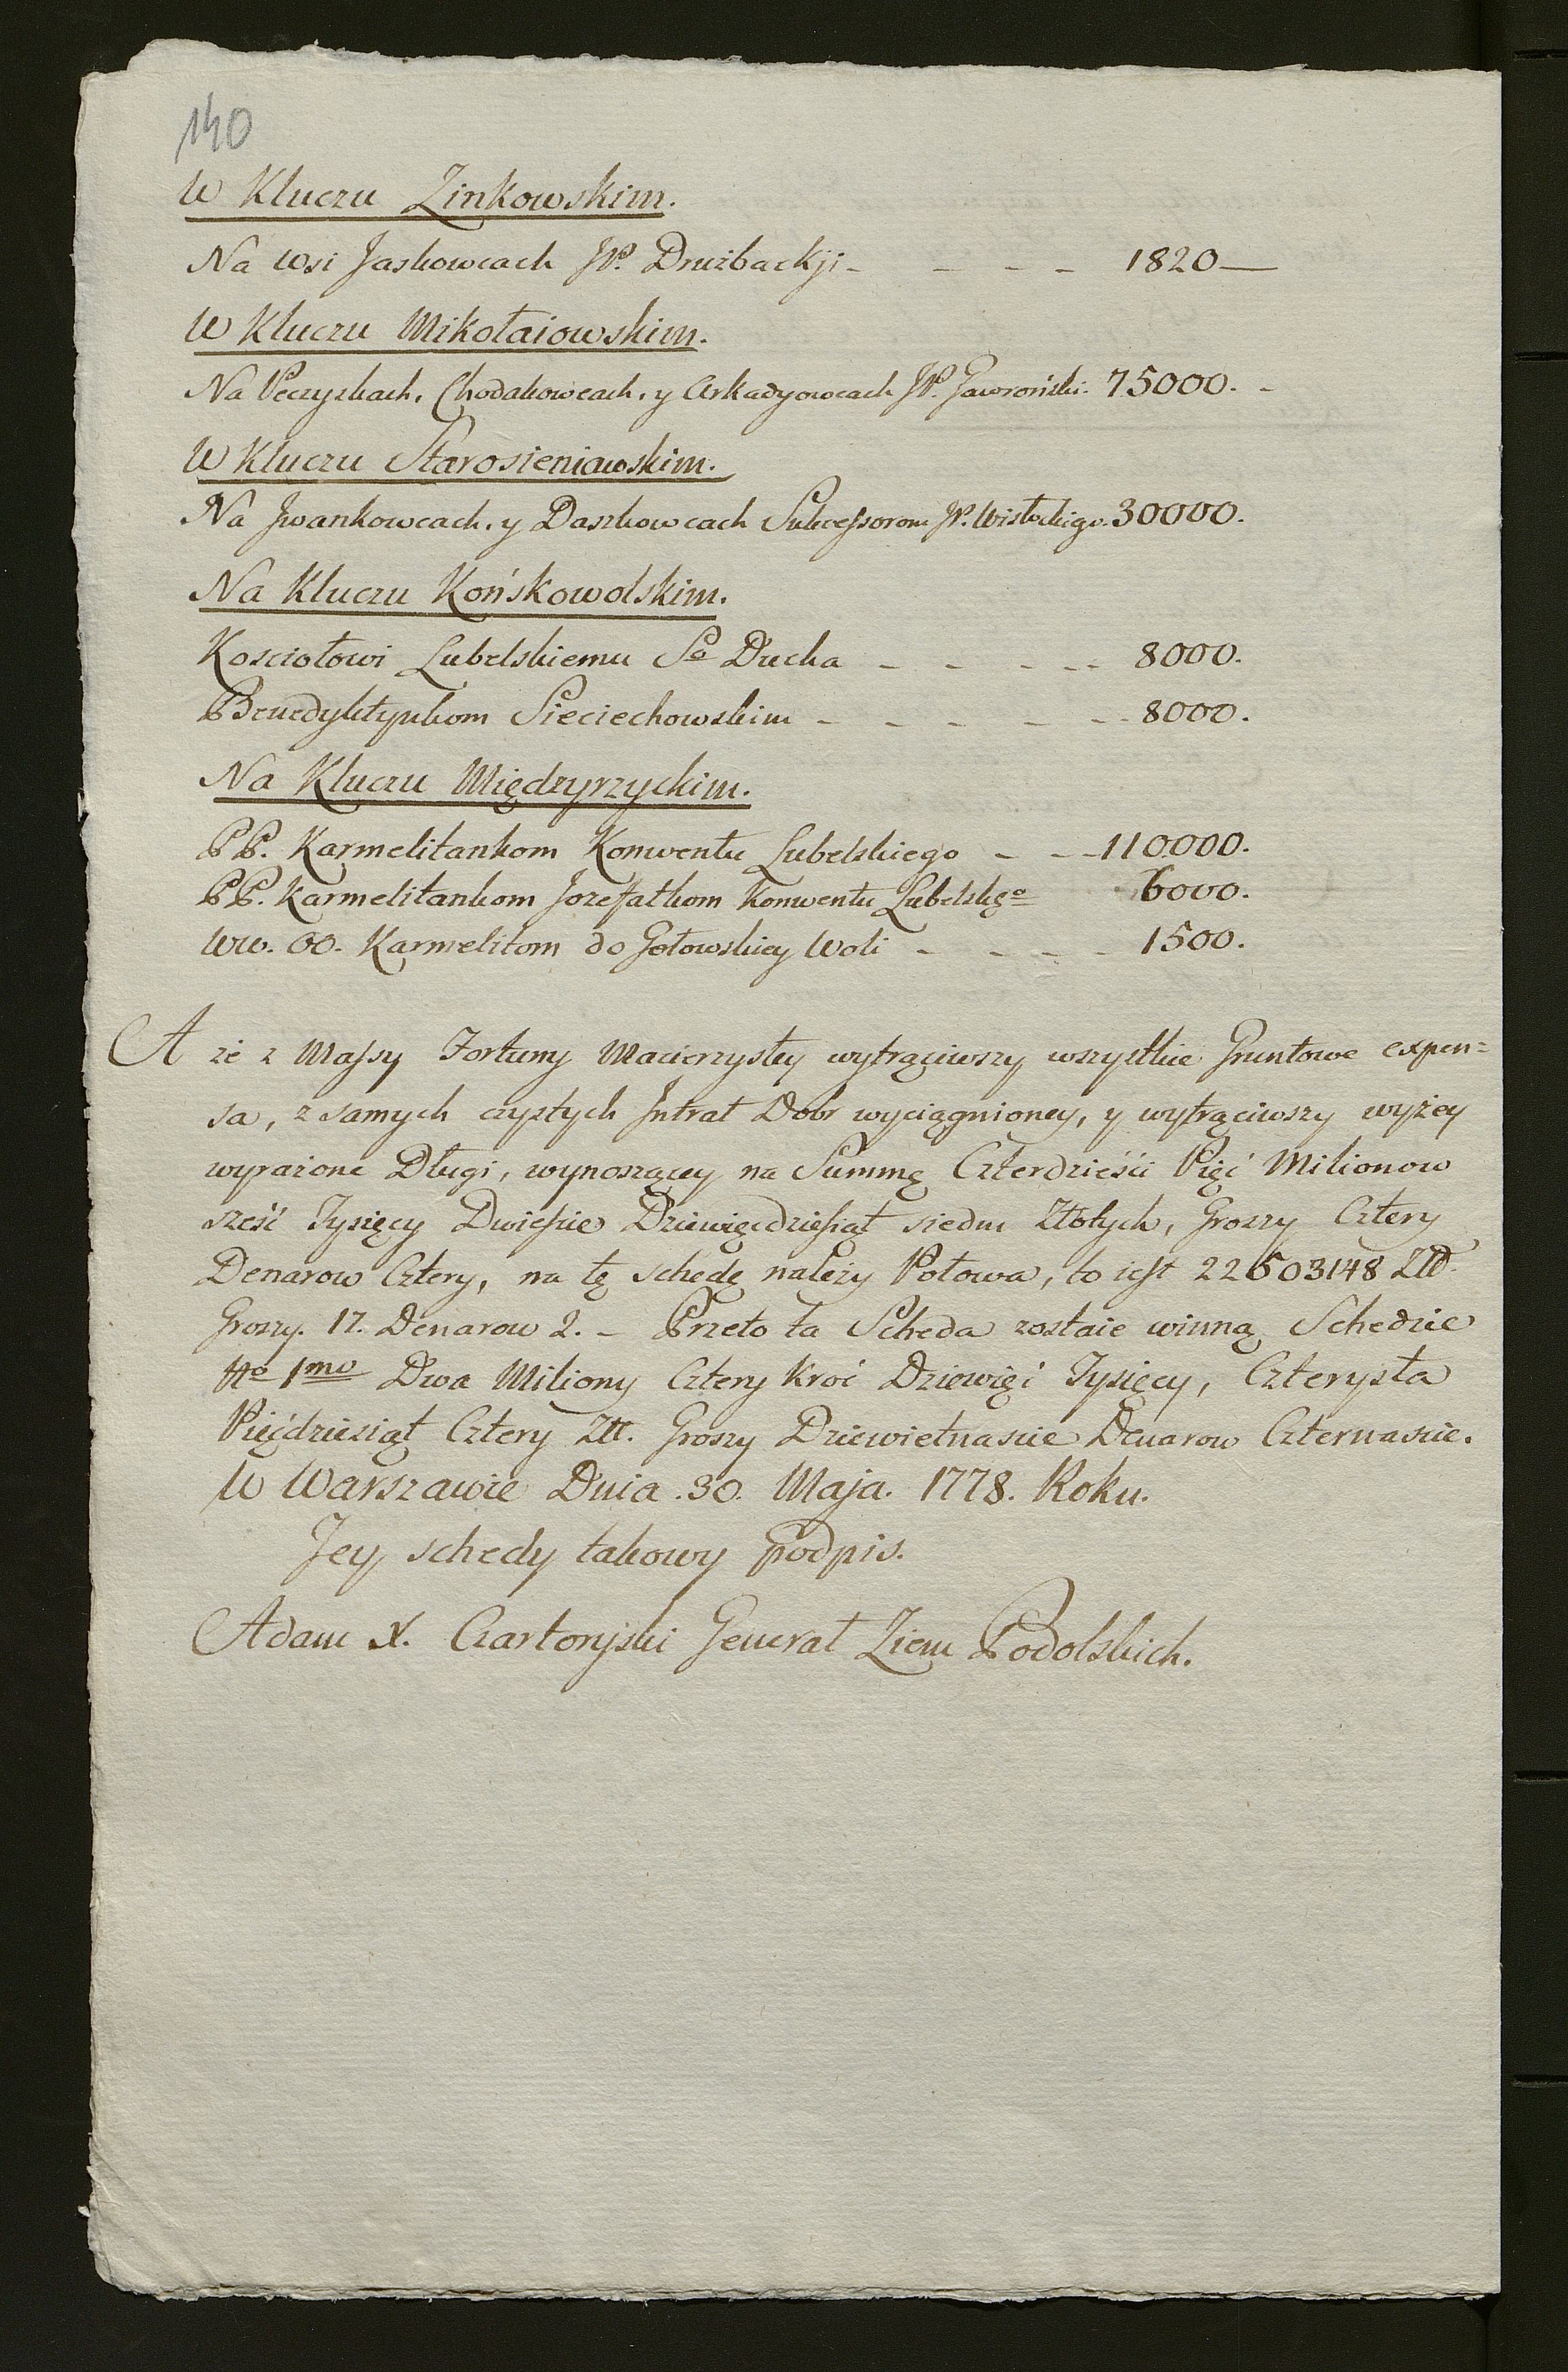 140
W Kluczu Zinkowskim.
Na Wsi Jaskowcach JP. Drużbackji - - - - 1820 —
W Kluczu Mikołaiowskim.
Na Peczyskach, Chodakowcach, y Arkadyowcach JP. Gaworoński. 75000. -
W Kluczu Starosieniawskim.
Na Jwankowcach, y Daszkowcach Sukcessorom JP. Wisłockigo. 30000.
Na Kluczu Końskowolskim.
Kosciołowi Lubelskiemu So Ducha - - - - - 8000.
Benedyktynkom Sieciechowskim - - - - - - 8000.
Na Kluczu Międzyrzyckim.
PP. Karmelitankom Konwentu Lubelskiego - - - 110000.
PP. Karmelitankom Jozefatkom Konwentu Lubelskgo 6000.
WW. OO. Karmelitom do Gołowskiey Woli - - - - 1500.
A że z Massy Fortuny Macierzystey wytrąciwszy wszystkie Gruntowe expen=
sa, z samych czystych Jntrat Dobr wyciągnioney, y wytrąciwszy wyżey
wyrażone Długi, wynoszącey na Summę Czterdzieści Pięć Milionow
sześć Tysięcy Dwieście Dziewięcdziesiąt siedm Złotych, Groszy Cztery
Denarow Cztery, na tę schedę należy Połowa, to iest 22503148 Zło.
Groszy. 17. Denarow 2. - Przeto ta Scheda zostaie winną Schedzie
No 1mo Dwa Miliony Cztery Kroć Dziewięć Tysięcy, Czterysta
Pięćdziesiąt Cztery Złł. Groszy Dziewietnascie Denarow Czternascie.
W Warszawie Dnia .30. Maja. 1778. Roku.
Jey schedy takowy podpis.
Adam X. Czartoryski Generał Ziem Podolskich.